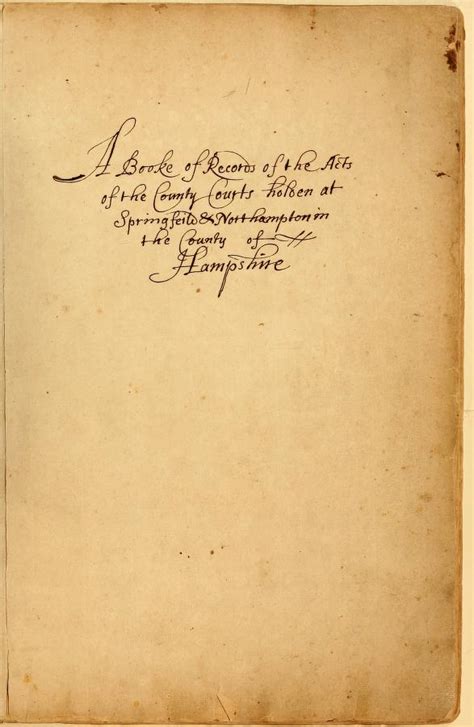 A Booke of Records of the Acts
of the County Courts holden at
Springfeild & Northampton in
the County of
Hampshire